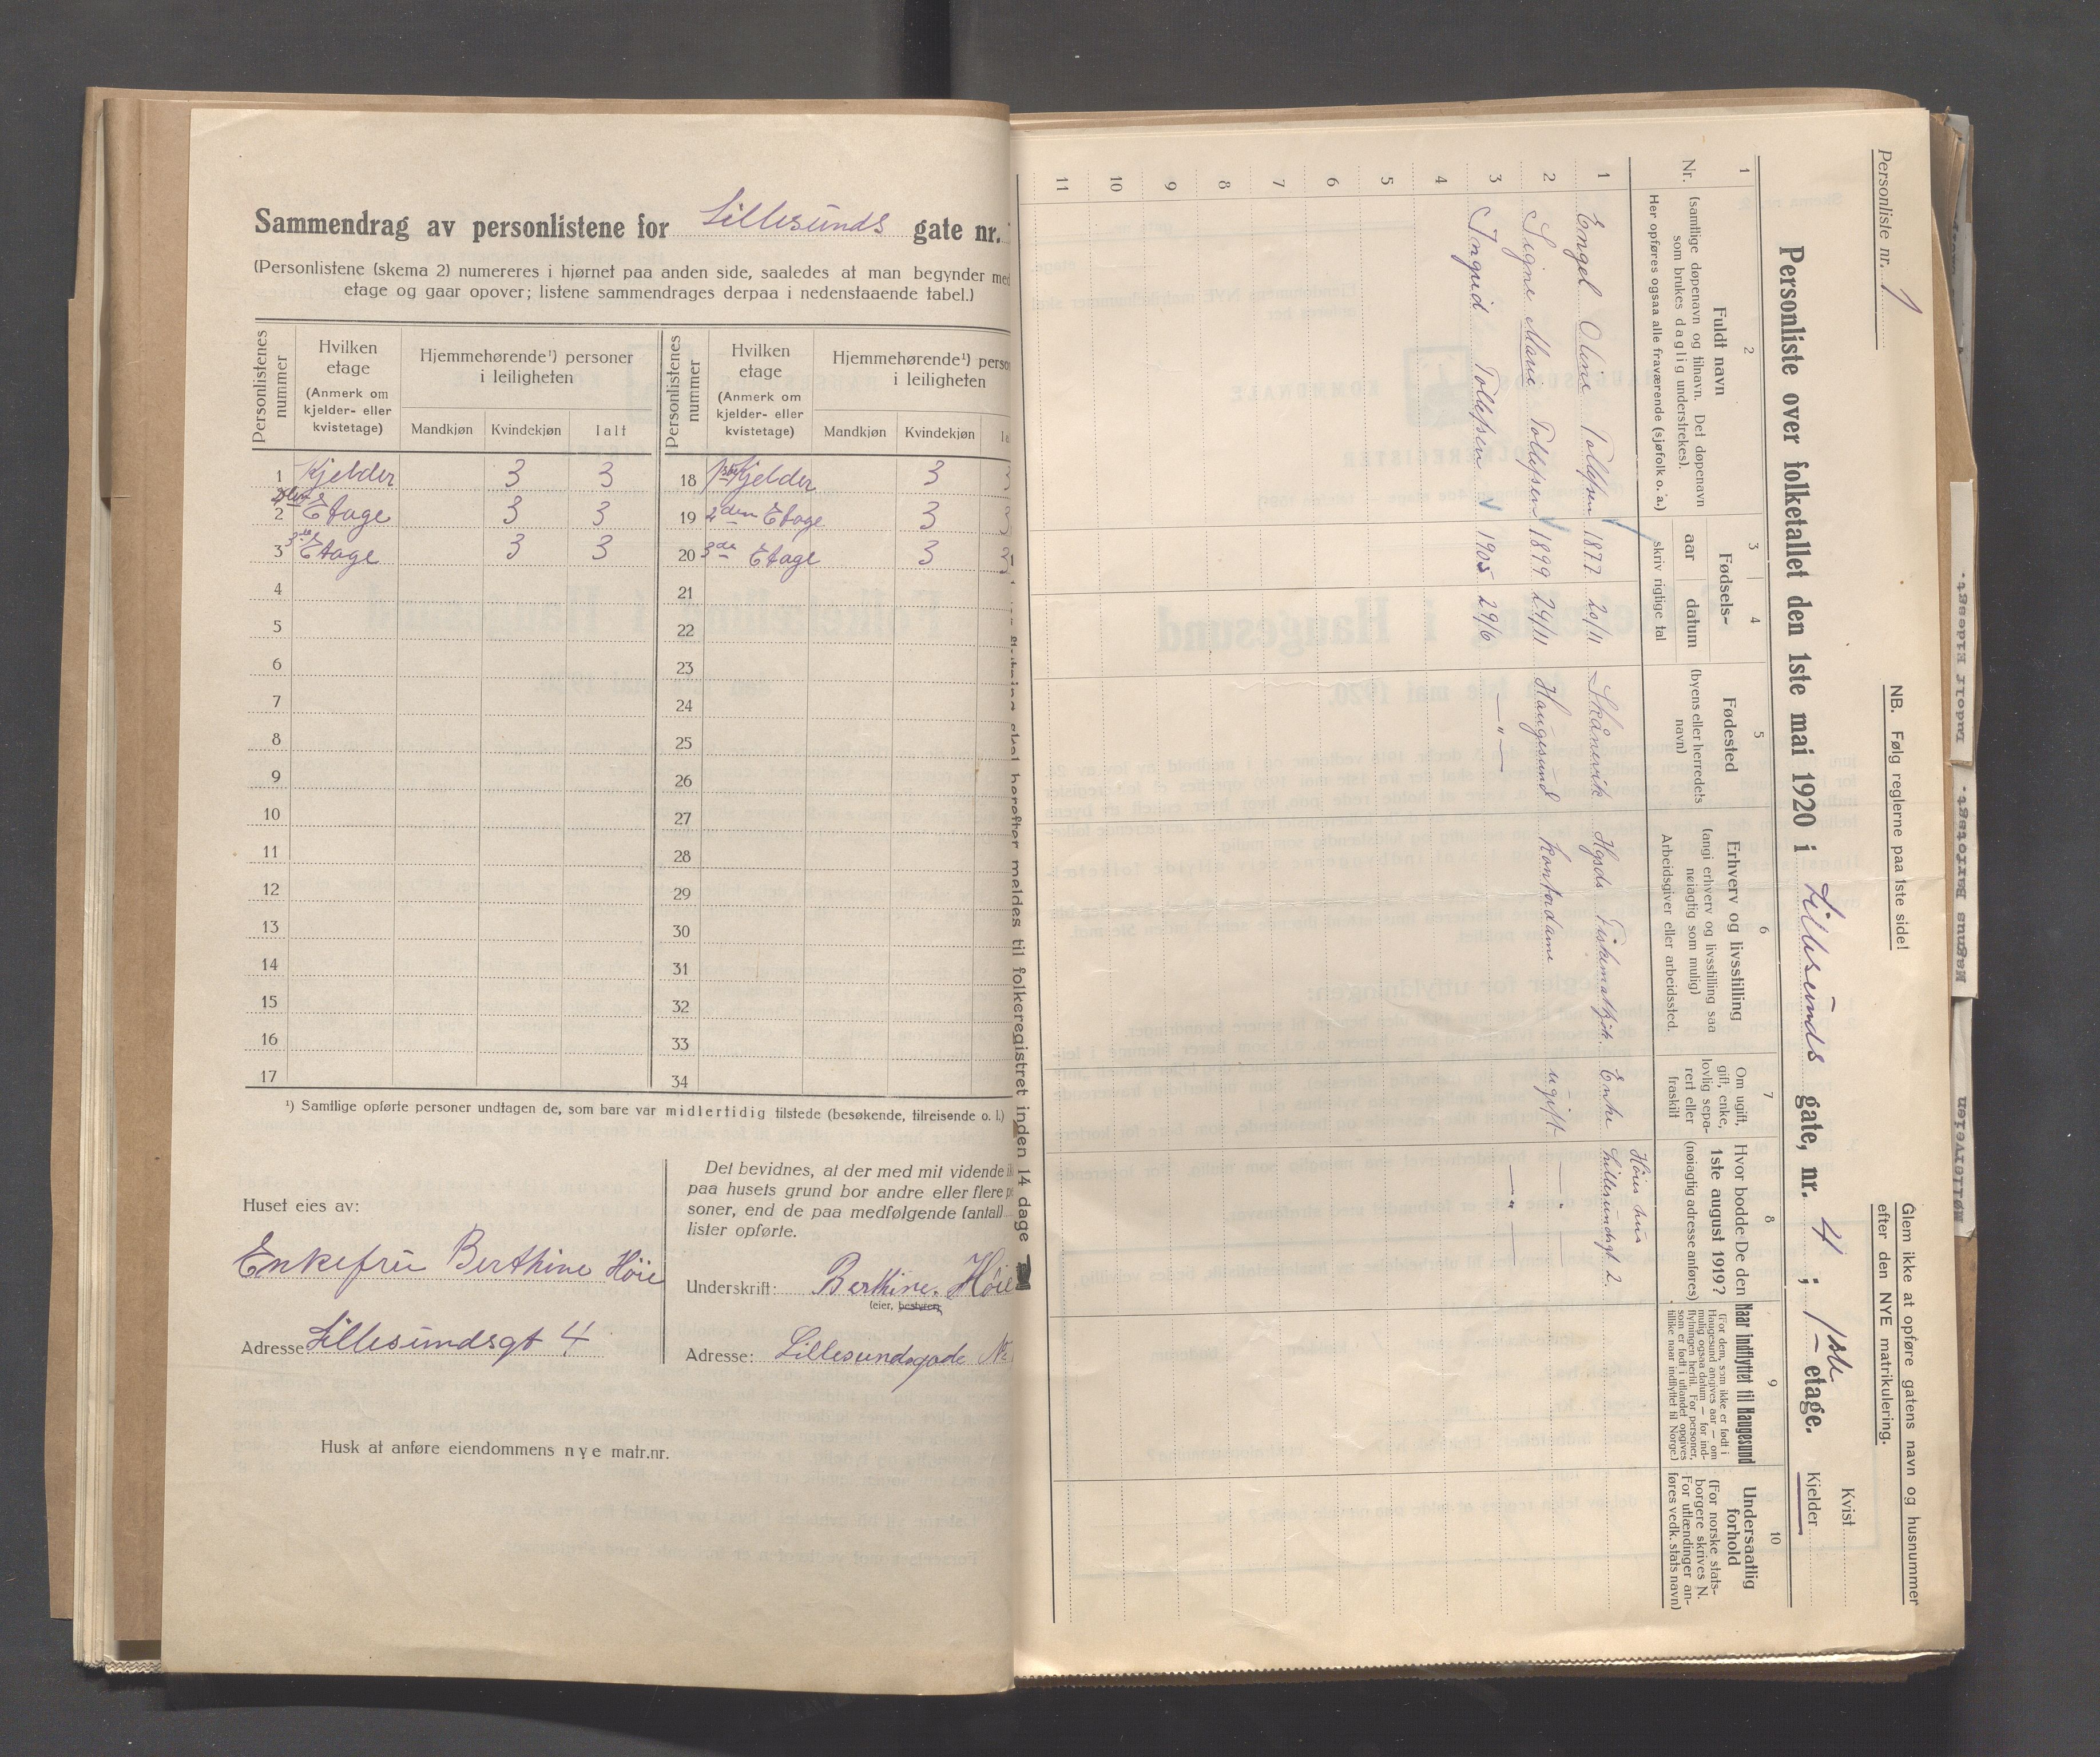 Sammendrag av personlistene for Lillesunds gate nr.
(Personlistene (skema 2) numereres i hjørnet paa anden side, saaledes at man begynder med
etage og gaar opover; listene sammendrages derpaa i nedenstaaende tabel.)
Personlistenes nummer
Hvilken etage
(Anmerk om kjelder- eller kvistetage)
Hjemmehørende¹) personer i leiligheten
Mandkjøn Kvindekjøn Ialt
Personlistenes nummer
Hvilken etage
(Anmerk om kjelder- eller kvistetage)
Hjemmehørende¹) perso
i leiligheten
Mandkjøn Kvindekjøn
1 Kjelder 3 3
2 Etage 3 3
3 3de Etage 3 3
4
5
6
7
8
9
10
11
12
13
14
15
16
17
18 Kjelder 3 3
19 2den Etage 3 3
20 3de Etage 3 3
21
22
23
24
25
26
27
28
29
30
31
32
33
34
¹) Samtlige opførte personer undtagen de, som bare var midlertidig tilstede (besøkende, tilreisende o. l.)
Huset eies av:
Enkefru Berthine Höie
Adresse Lillesundsgt 4
Det bevidnes, at der med mit vidende
paa husets grund bor andre eller flere
soner, end de paa medfølgende (antall)
lister opførte.
Underskrift: Berthine Höie
(eier, bestyrer)
Adresse: Lillesundsgade No
Husk at anføre eiendommens nye matr.nr.
skal herefter meldes til folkeregistret inden 14 dage
Personliste nr. 1
NB. Følg reglerne paa 1ste side!
Glem ikke at opføre gatens navn og husnummer
efter den NYE matrikulering.
Personliste over folketallet den 1ste mai 1920 i Lillesunds gate, nr. 4; 1ste etage.
Kvist
Kjelder
1
Nr.
2
Fuldt navn
(samtlige døpenavn og tilnavn. Det døpenavn
som brukes daglig understrekes).
Her opføres ogsaa alle fraværende (sjøfolk o. a.)
3 4
Fødsels-
aar datum
skriv rigtige tal
5
Fødested
(byens eller herredets
navn)
6
Erhverv og livsstilling
(angi erhverv og livsstilling saa
nøiagtig som mulig)
Arbeidsgiver eller arbeidssted.
7
Om ugift,
gift, enke,
lovlig sepa-
rert eller
fraskilt
8
Hvor bodde De den
1ste august 1919?
(nøiagtig adresse anføres)
9
Naar indflyttet til Haugesund
(For dem, som ikke er født i
Haugesund angives aar — om
mulig ogsaa datum — for ind-
flytningen hertil. For personer,
som er født i utlandet opgives
tillike naar indflyttet til Norge.)
10
Undersaatlig
forhold
(For norske stats-
borgere skrives N.
For utlændinger an-
føres vedk. stats navn)
Höies hus
1 Engel Oline Tollefsen 1877 20/11 Skånevik Hgsds Enke Lillesundsgt 2.
2 Signe Marie Tollefsen 1899 24/11 Haugesund Kontordame ugift — " —
3 Ingrid Tollefsen 1905 29/6 — " — — " —
4
5
6
7
8
9
10
11
Lundor Eldesgt.
Magnus Barfotsgt.
Møllerveien